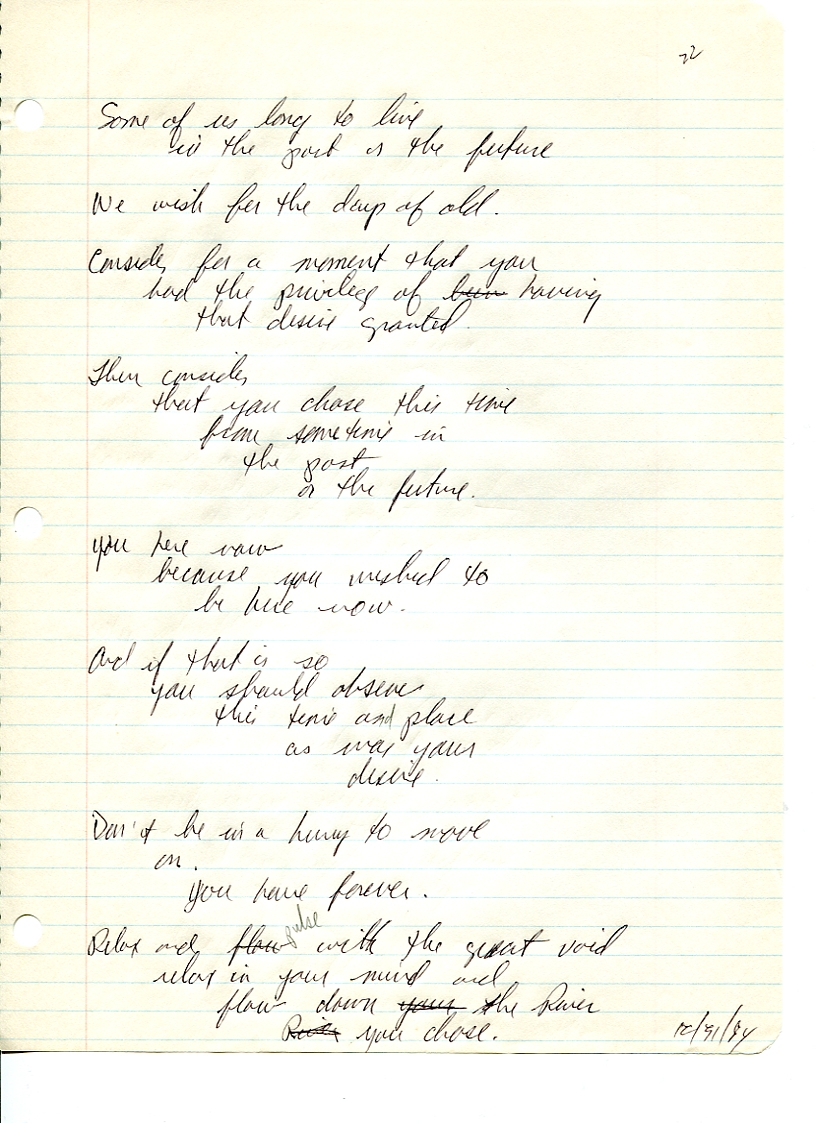 22
Some of us long to live
in the past or the future
We wish for the days of old.
Consider for a moment that you
had the privilege of been having
that desire granted.
Then consider
that you chose this time
from sometime in
the past
or the future.
you here now
because you wished to
be here now.
And if that is so
you should observe
this time and place
as was your
desire.
Don't be in a hurry to move
on.
You have forever.
pulse
Relax and flow with the great void
relax in your mind and
flow down your the River
River you chose.
12/31/84